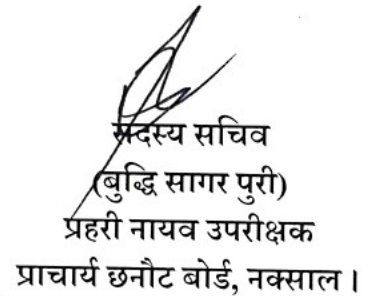 सदस्य सचिव
(बुद्धि सागर पुरी)
प्रहरी नायव उपरीक्षक
प्राचार्य छनौट बोर्ड, नक्साल।